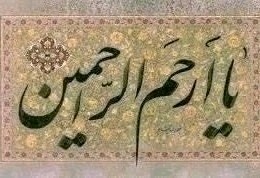 یا اَرحَمَ الرّاحِمین